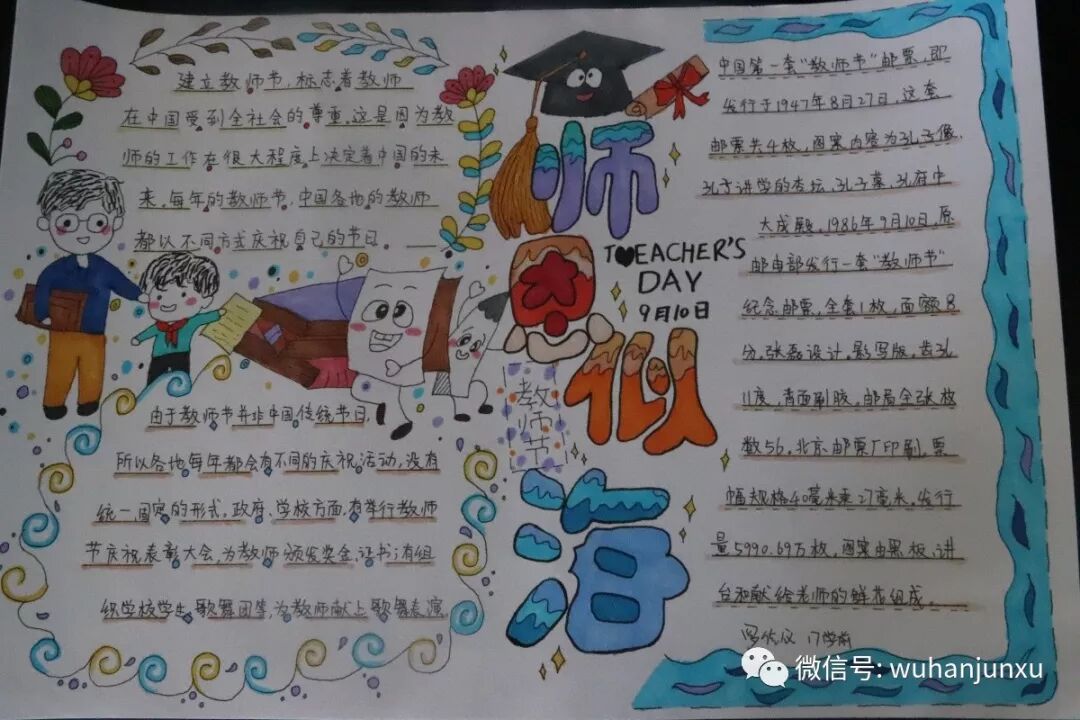 建立教师节,标志着教师
在中国受到全社会的尊重.这是因为教
师的工作在很大程度上决定着中国的未
来.每年的教师节,中国各地的教师
都以不同方式庆祝自己的节日.
由于教师节并非中国传统节日,
所以各地每年都会有不同的庆祝活动,没有
统一、固定的形式.政府、学校方面,有举行教师
节庆祝表彰大会,为教师颁发奖金、证书;有组
织学校学生、歌舞团等,为教师献上歌舞表演
师恩似海
T♥EACHER'S
DAY
9月10日
教师节
中国第一套“教师节”邮票,即
发行于1947年8月27日,这套
邮票共4枚,图案内容为孔子像、
孔子讲学的杏坛、孔子墓、孔府中
大成殿.1986年9月10日,原
邮电部发行一套“教师节”
纪念邮票,全套1枚,面额8
分,张磊设计,影写版,齿孔
11度,背面刷胶,邮局全张枚
数56,北京邮票厂印刷,票
幅规格40毫米乘27毫米,发行
量5990.69万枚,图案由黑板、讲
台和献给老师的鲜花组成.
微信号: wuhanjunxu